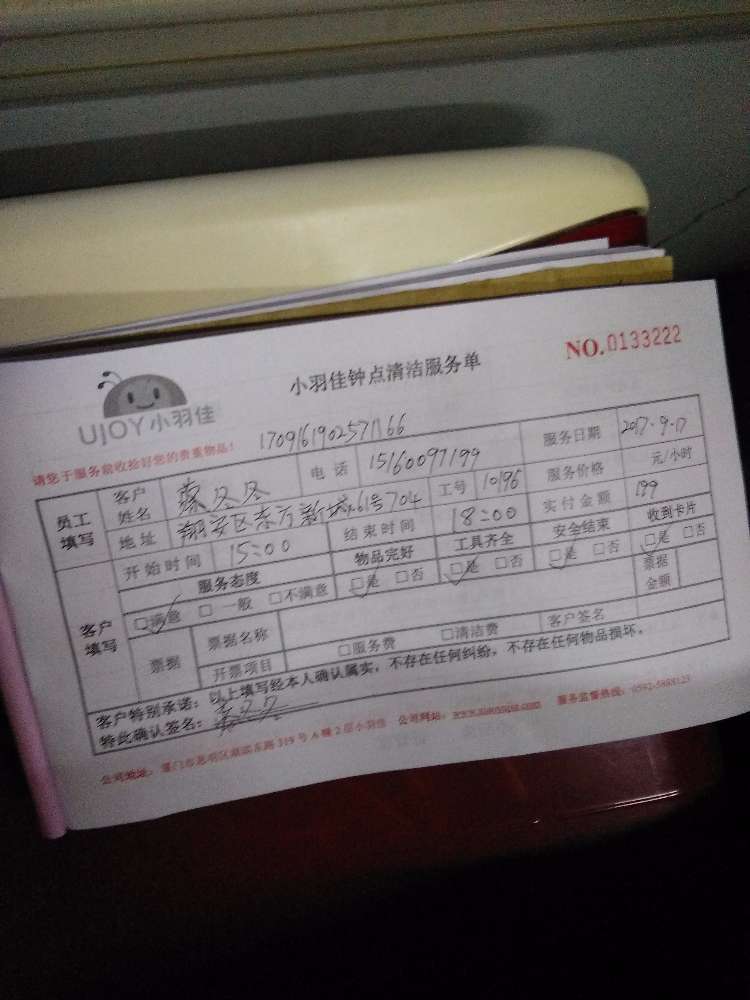 NO.0133222
小羽佳钟点清洁服务单
UJOY小羽佳
请您于服务前收拾好您的贵重物品!
1709161902571166
员工填写 客户姓名 冬冬 电话 15160097199 服务日期 2017-9-17
地址 翔安区东方新城61号704 工号 10196 服务价格 元/小时
开始时间 15:00 结束时间 18:00 实付金额 199
客户填写 服务态度 物品完好 工具齐全 安全结束 收到卡片
□满意 □一般 □不满意 □是 □否 □是 □否 □是 □否 □是 □否
票据 票据名称 票据金额
开票项目 □服务费 □清洁费 客户签名
客户特别承诺:以上填写经本人确认属实,不存在任何纠纷,不存在任何物品损坏。
特此确认签名:
公司地址:厦门市思明区湖滨东路319号A幢2层小羽佳 公司网站: 服务监督热线: